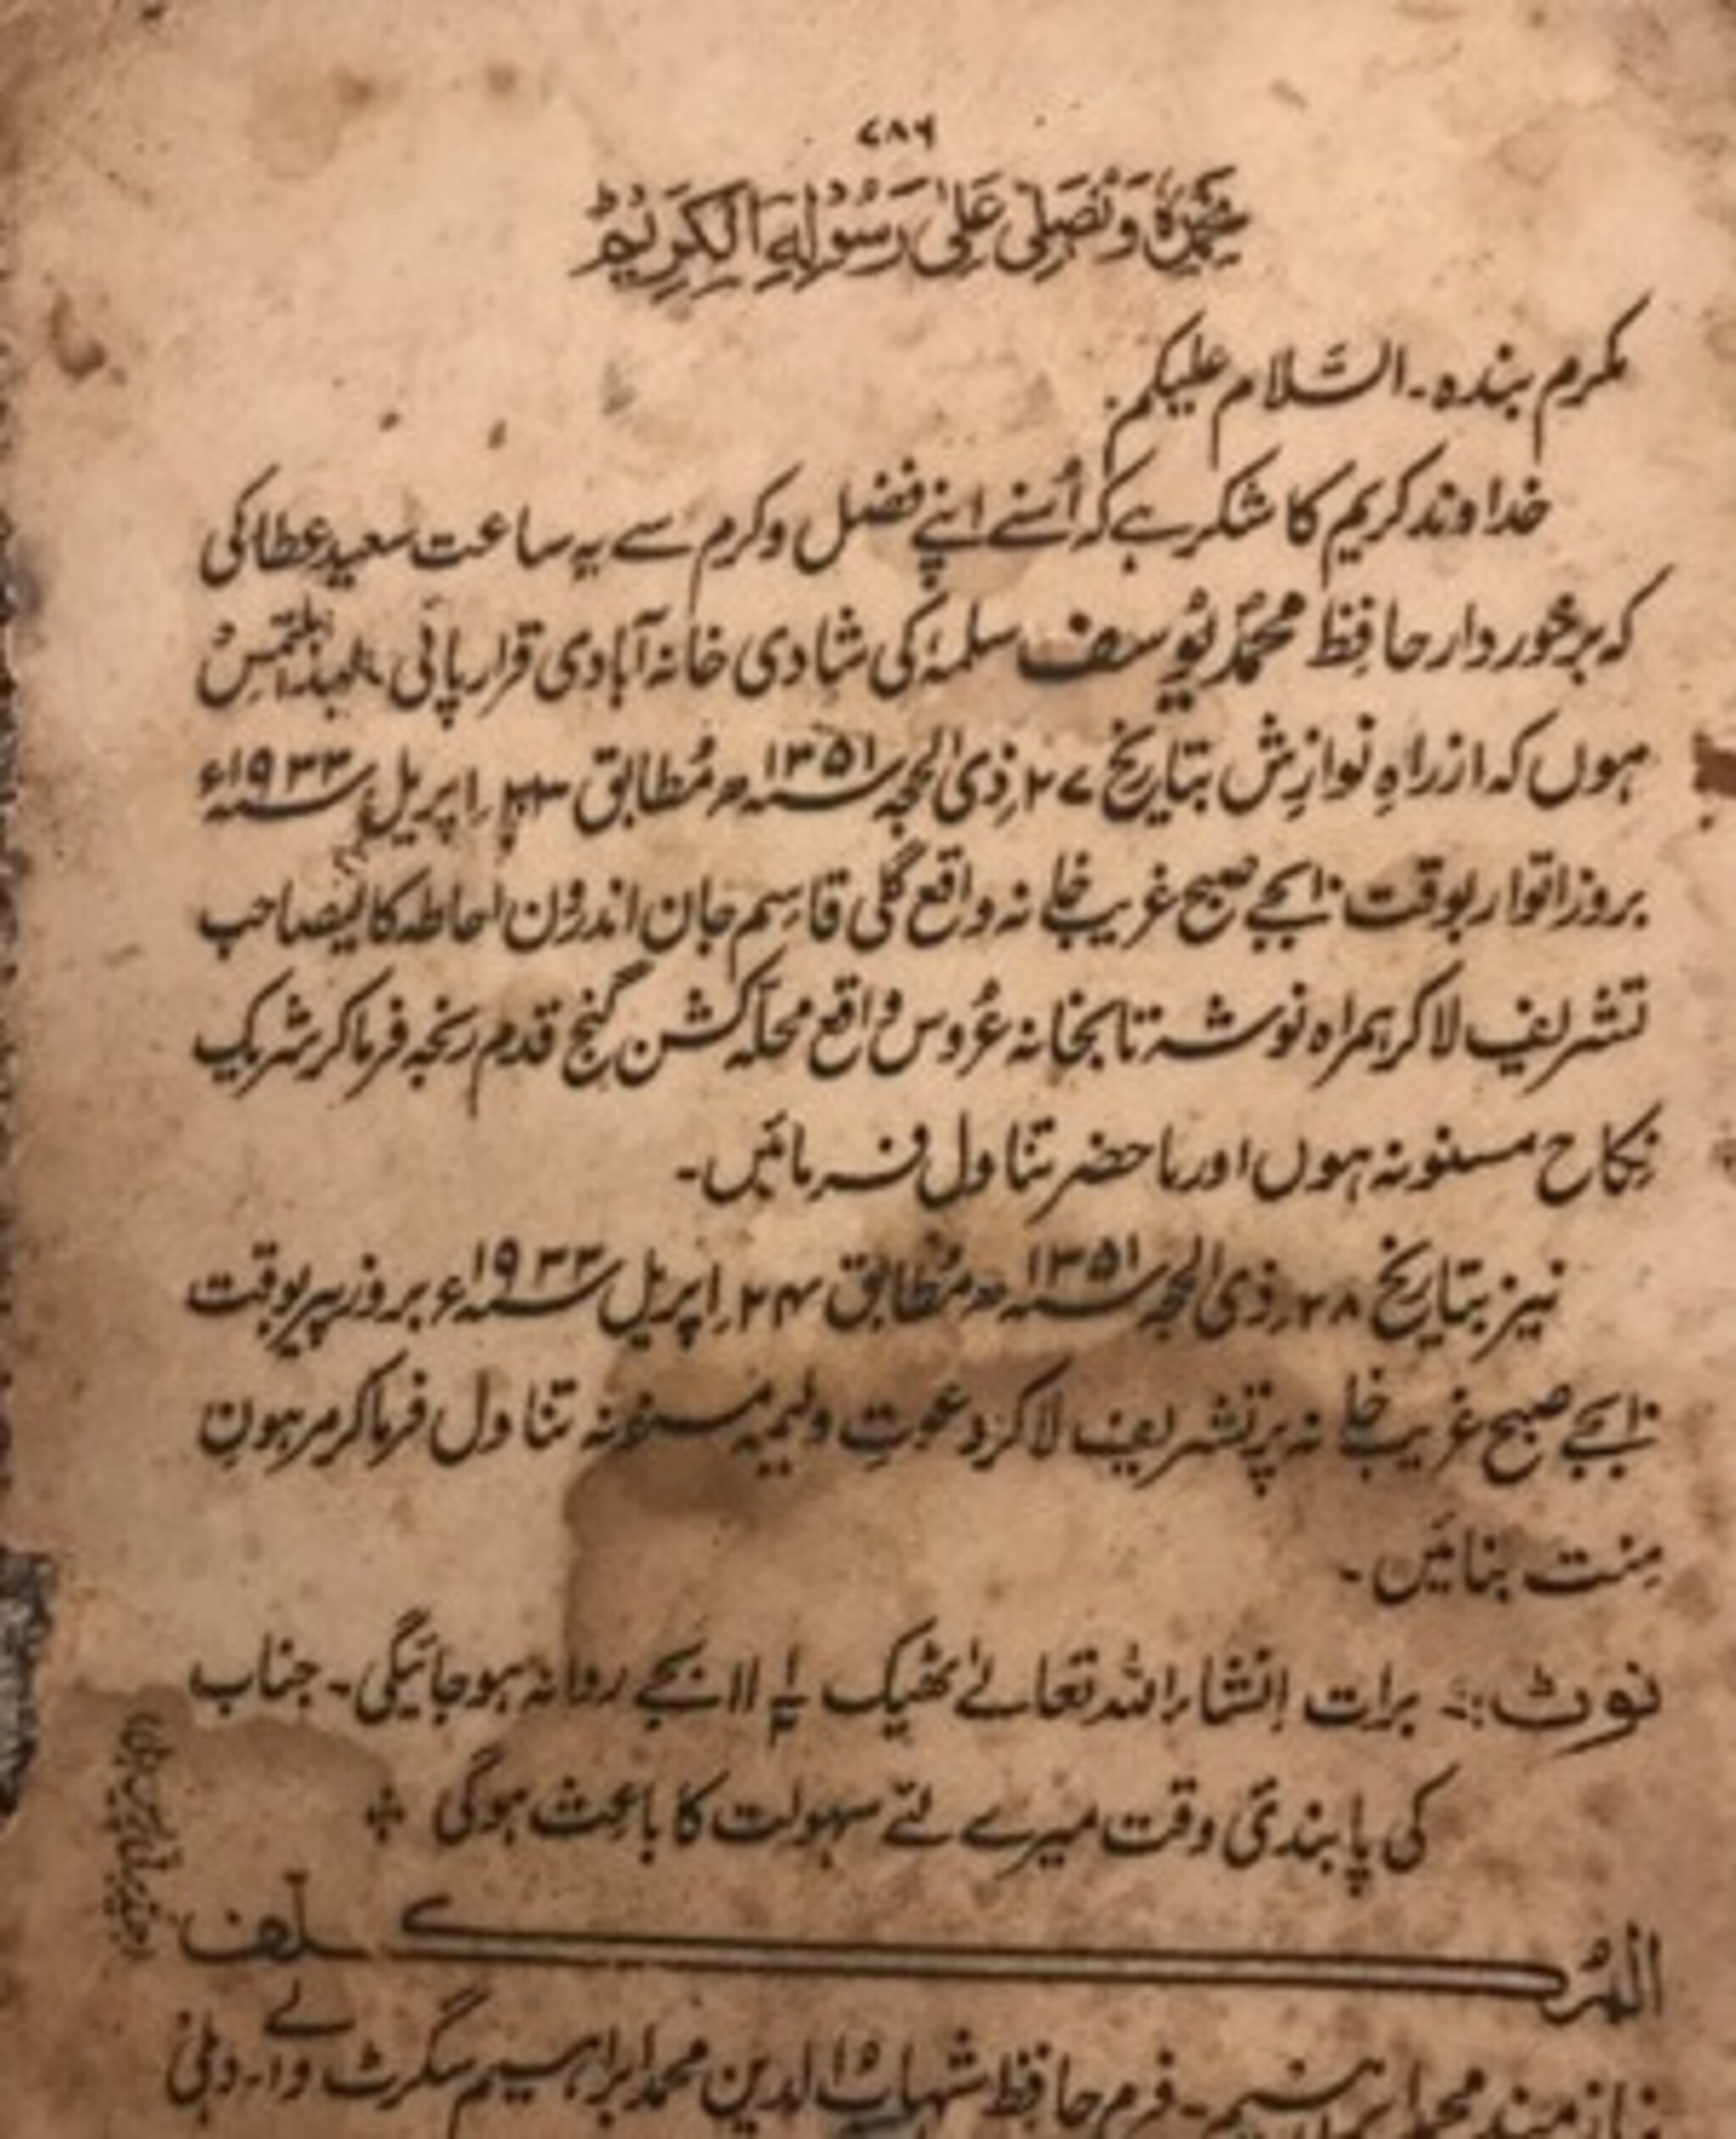 ۷۸۶
نَحْمَدُہٗ وَنُصَلِّی عَلٰی رَسُوْلِہِ الْکَرِیْمِ
مکرم بندہ۔ السّلام علیکم۔
خداوند کریم کا شکر ہے کہ اُسنے اپنے فضل وکرم سے یہ ساعت سعید عطا کی
کہ برخوردار حافظ محمّد یُوسف سلمہٗ کی شادی خانہ آبادی قرار پائی۔ لہذا ملتمس
ہوں کہ از راہِ نوازش بتاریخ ۲۷ ذی الحجہ سنہ ۱۳۵۱ھ مُطابق ۲۳ اپریل سنہ ۱۹۳۳ء
بروز اتوار بوقت ۱۰ بجے صبح غریبخانہ واقع گلی قاسم جان اندرُون احاطہ کالیصاحب
تشریف لاکر ہمراہ نوشہ تا بخانہ عرُوس واقع محلّہ کشن گنج قدم رنجہ فرماکر شریک
نکاح مسنونہ ہوں اور ماحضر تناول فرمائیں۔
نیز بتاریخ ۲۸ ذی الحجہ سنہ ۱۳۵۱ھ مُطابق ۲۴ اپریل سنہ ۱۹۳۳ء بروز پیر بوقت
۱۰ بجے صبح غریبخانہ پر تشریف لاکر دعوتِ ولیمہ مسنونہ تناول فرماکر مرہونِ
مِنت بنائیں۔
نوٹ:۔ برات اِنشاء اللہ تعالےٰ ٹھیک ۱۱ بجے روانہ ہوجائیگی۔ جناب
کی پابندیٔ وقت میرے لئے سہولت کا باعث ہوگی
المُکلّف
نیازمند محمد ابراہیم۔ فرم حافظ شہاب الدین محمد ابراہیم سگرٹ والے۔ دہلی